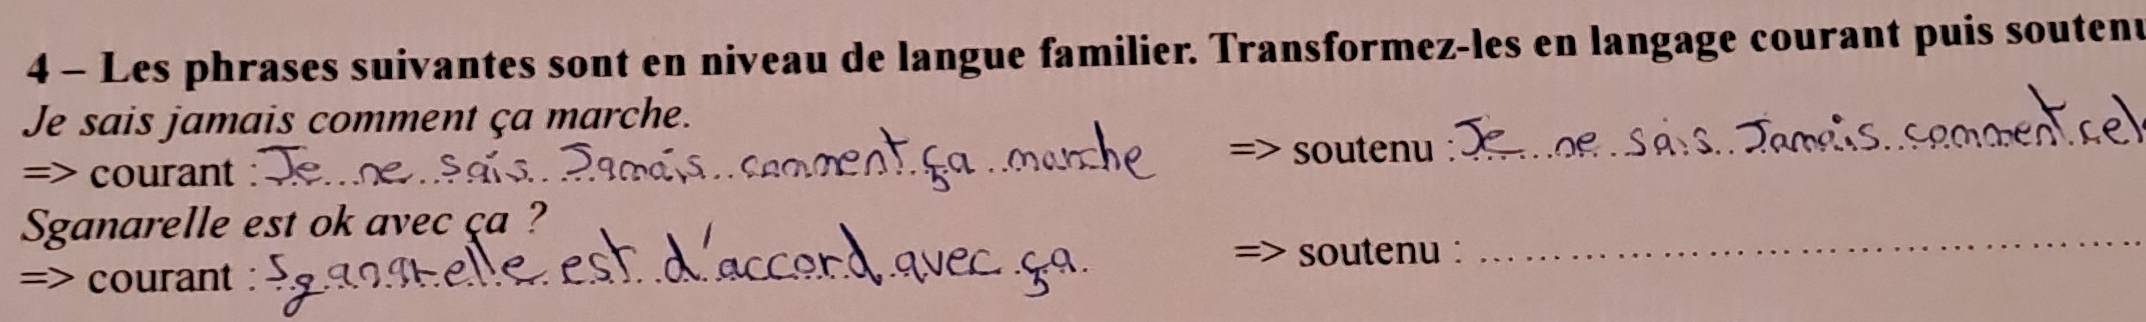 4 – Les phrases suivantes sont en niveau de langue familier. Transformez-les en langage courant puis soutenu
Je sais jamais comment ça marche.
=> courant : Je ne sais Jamais comment ça marche => soutenu : Je ne sais Jamais comment cel
Sganarelle est ok avec ça ?
=> courant : Sganarelle est d'accord avec ça. => soutenu :